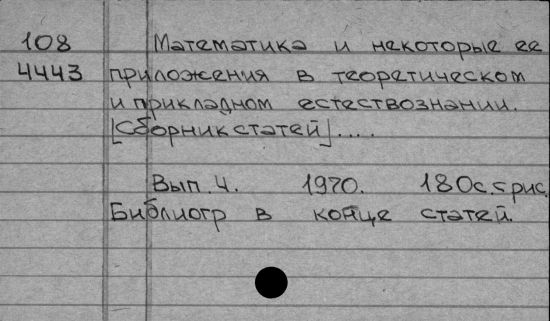 108 Математика и некоторые ее
4443 приложения в теоретическом
и прикладном естествознании.
[Сборник статей]....
Вып. 4. 1970. 180с с рис.
Библиогр в конце статей.